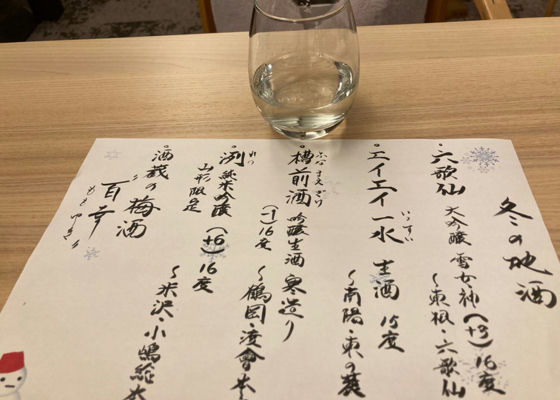 冬の地酒
六歌仙
大吟醸 雪女神 (+3) 16度
〜東根・六歌仙
エイエイ一水 生酒 15度
いっすい
〜南陽・東の麓
槽前酒 吟醸生酒 寒造り
ふな まえ さけ
(-1) 16度 〜鶴岡・渡會本
洌 純米吟醸 (+6) 16度
れつ
山形限定
〜米沢・小嶋総本
酒蔵の梅酒
百幸